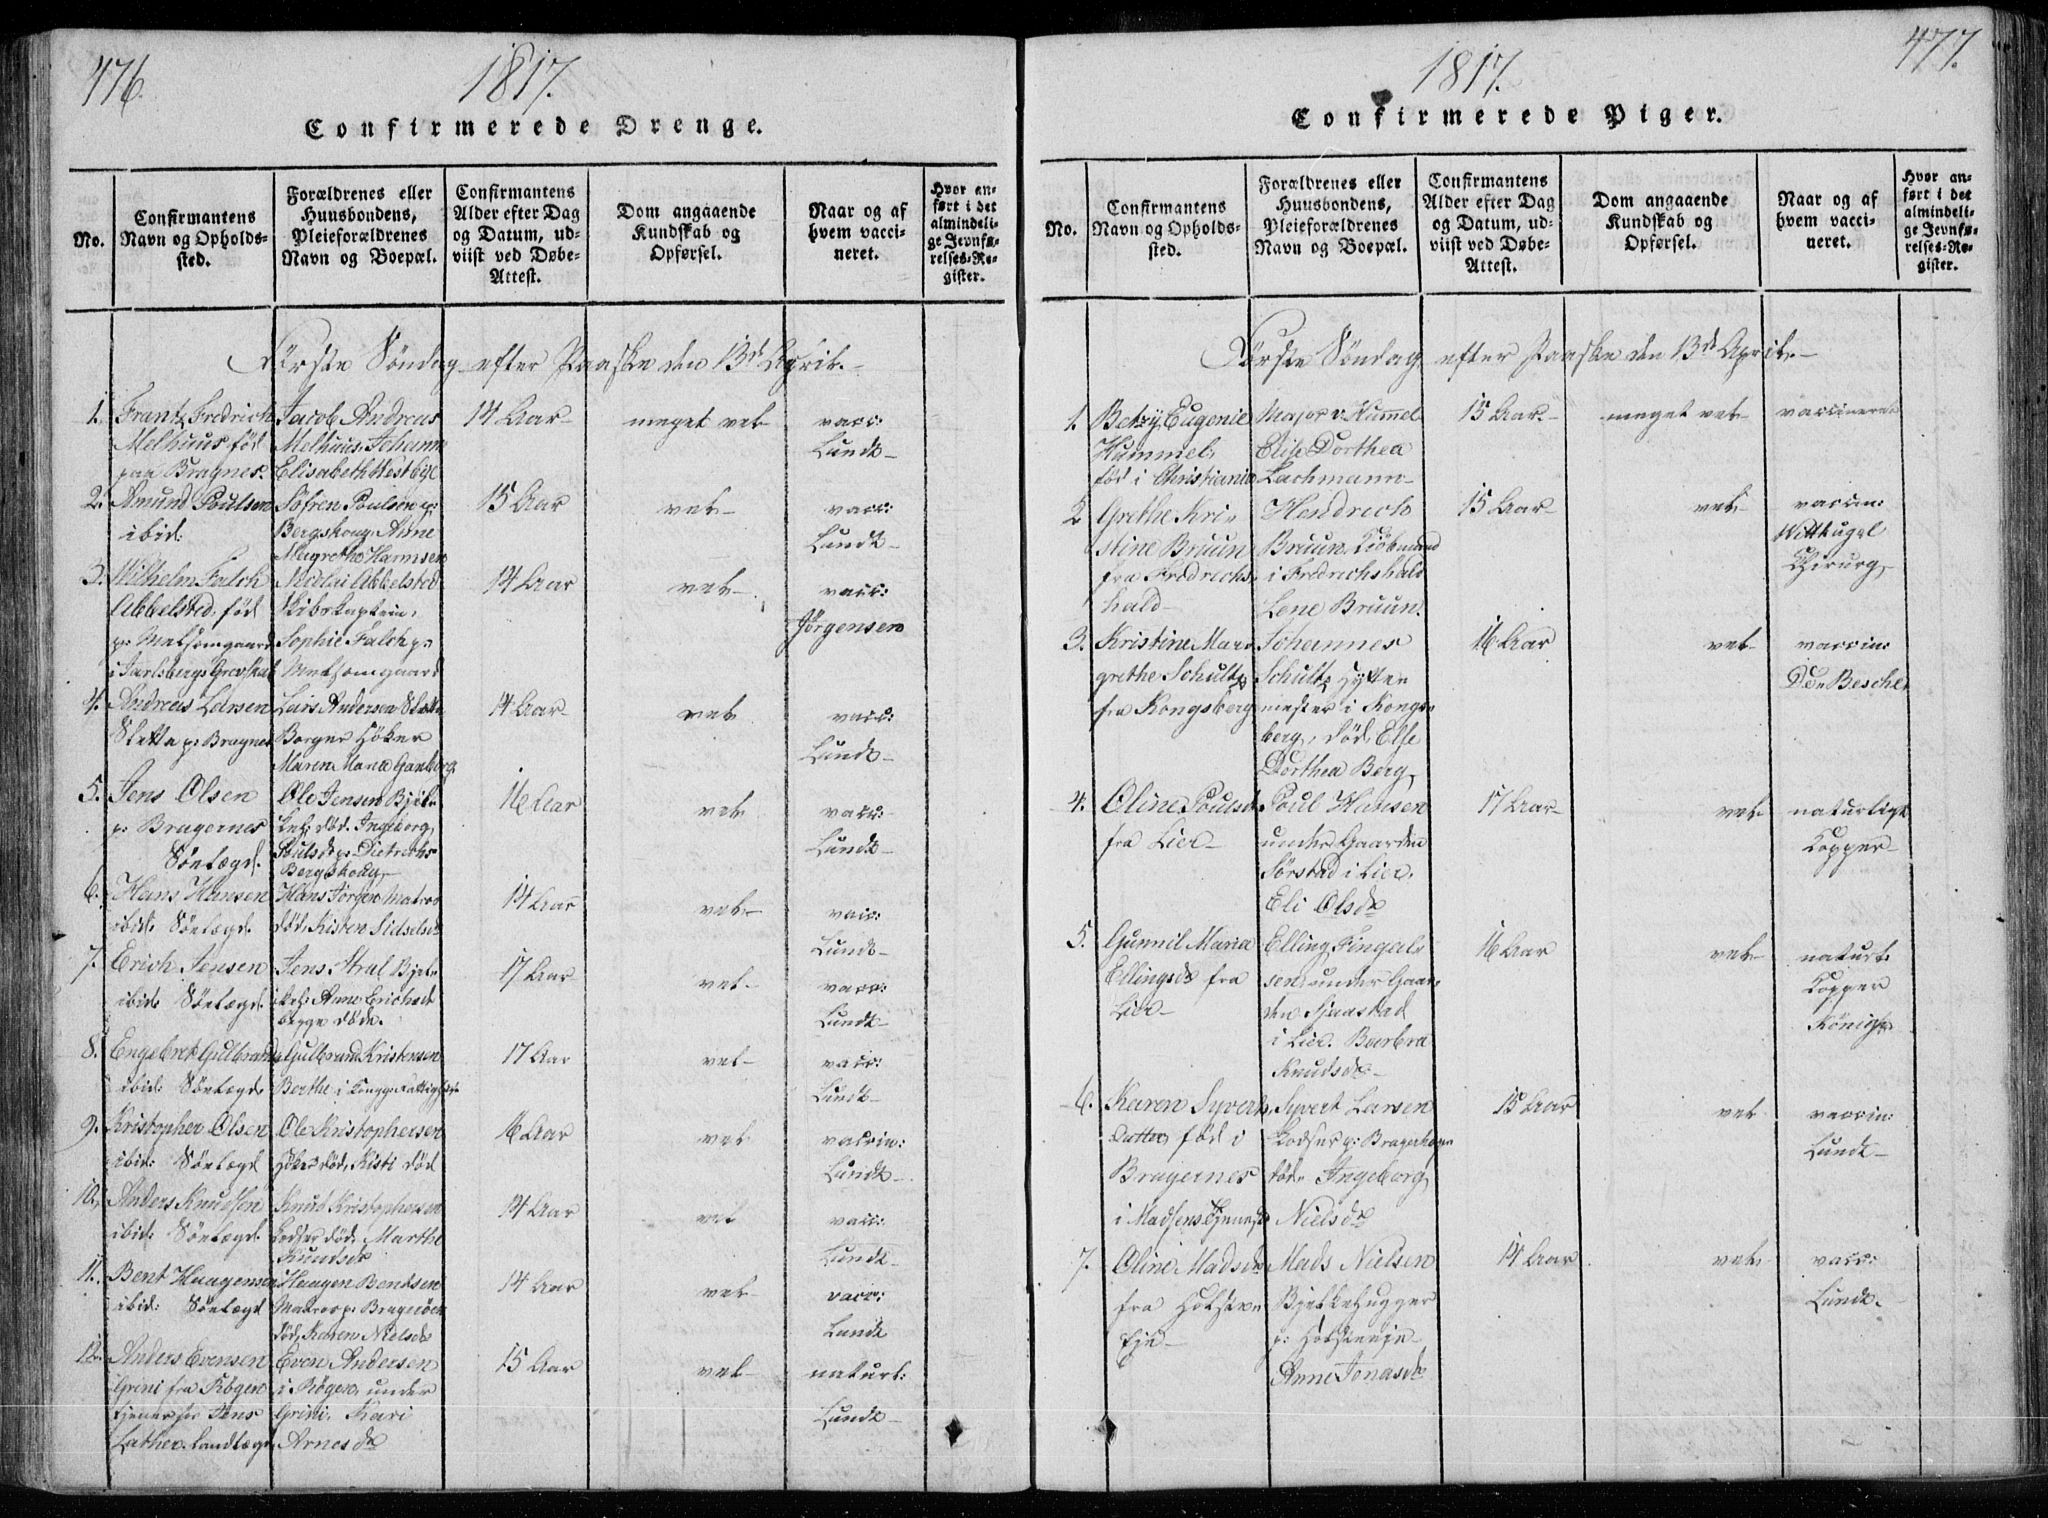 476.
1817.
Confirmerede Drenge.
No.
Confirmantens
Navn og Opholds-
sted.
Forældrenes eller
Huusbondens,
Pleieforældrenes
Navn og Boepæl.
Confirmantens
Alder efter Dag
og Datum, ud-
viist ved Døbe-
Attest.
Dom angaaende
Kundskab og
Opførsel.
Naar og af
hvem vacci-
neret.
Hvor an-
ført i det
almindeli-
ge Jevnfø-
relses-Re-
gister.
Første Søndag efter Paaske den 13de April.
1.
Frantz Fredrich
Melhuus fød
paa Bragnes.
Jacob Andreas
Melhuus, Johanne
Elisabeth Hestbye
14 Aar
meget vel
vacc:
Lundt
2.
Amund Poulsen
ibid:
Søfren Poulsen p:
Bergskoug. Anne
Margrethe Harmsen
15 Aar
vel
vacc:
Lundt
3.
Wilhelm Falch
Abbelsted, fød
i Jarlsbergs Grevskab
Nicolai Abbelsted
Skibskaptein,
Sophie Falch p:
14 Aar
vel
vacc:
Jørgensen
4.
Andreas Larsen
Sletta p: Bragnes
Lars Andersen Sletta
Borger Høker
Maren Maria
14 Aar
vel
vacc:
Lundt
5.
Jens Olsen
p: Bragernes
Sønlægd.
Ole Jensen
død. Ingeborg
Poulsdr p: Dietrichs
Bergskoug
16 Aar
vel
vacc:
Lundt
6.
Hans Hansen
ibid: Sønlægd.
Hans Jørgen Matros
død, Kisten Sidselsdr
14 Aar
vel
vacc:
Lundt
7.
Erich Jensen
ibid: Sønlægd.
Jens
Anne Erichsdr
begge døde.
17 Aar
vel
vacc:
Lundt
8.
Engebret Gulbrands
ibid: Sønlægd.
Gulbrand Kristensen
Berthe i
17 Aar
vel
vacc:
Lundt
9.
Kristopher Olsen
ibid: Sønlægd
Ole Kristophersen
død, Kisti død
16 Aar
vel
vaccin:
Lundt
10.
Anders Knudsen
ibid: Sønlægd.
Knud Kristophersen
Lodser død. Marthe
Knudsdr
14 Aar
vel
vacc:
Lundt
11.
Bent Haagensen
ibid: Sønlægd
Haagen Bendsen
Matros p: Bragerøen
død, Karen Nielsdr
14 Aar
vel
vacc:
Lundt
12.
Anders Evensen
Grini fra Røgen
tjener for Jens
Lather. Landlægd
Even Andersen
i Røgen, under
Grini. Kari
Arnesdr
15 Aar
vel
naturl:
Lundt
477.
1817.
Confirmerede Piger.
No.
Confirmantens
Navn og Opholds-
sted.
Forældrenes eller
Huusbondens,
Pleieforældrenes
Navn og Boepæl.
Confirmantens
Alder efter Dag
og Datum, ud-
viist ved Døbe-
Attest.
Dom angaaende
Kundskab og
Opførsel.
Naar og af
hvem vacci-
neret.
Hvor an-
ført i det
almindeli-
ge Jevnfø-
relses-Re-
gister.
Første Søndag efter Paaske den 13de April.
1.
Betzy Eugenie
Hummel,
fød i Christiania
Major v: Hummel
Elise Dorthea
Lachmann
15 Aar
meget vel
vaccineret
2
Grethe Kri-
stine Bruun
fra Fredrichs-
hald
Hendrich
Bruun. Kiøbmand
i Fredrichshald
Lene Bruun.
15 Aar
vel
vaccin:
Wittkugel
Chirurg
3.
Kristine Mar-
grethe Schultz
fra Kongsberg
Johannes
Schultz Hytte-
mester i Kongs-
berg, død, Else
Dorthea Berg
16 Aar
vel
vaccin:
Dr. Beschel
4.
Oline Poulsdr
fra Lier
Poul Hansen
under Gaarden
Sørstad i Lier.
Eli Olsdr
17 Aar
vel
naturlige
Kopper
5.
Gunnil Maria
Ellingsdr fra
Lier
Elling Fingals-
sen, under Gaar-
den Kjaastad
i Lier. Barbra
Knudsdr
16 Aar
vel
naturl:
Kopper
König
6.
Karen Syverts
Datter, fød i
Bragernes
i Madsens Tjeneste
Syvert Larsen
Lodser p: Bragerhagen
død. Ingeborg
Nielsdr
15 Aar
vel
vaccin:
Lundt
7.
Oline Madsdr
fra Holsten
Eje
Mads Nielsen
Bjelkehugger
p: Holsteneje
Anne Jonasdr
14 Aar
vel
vacc:
Lundt.